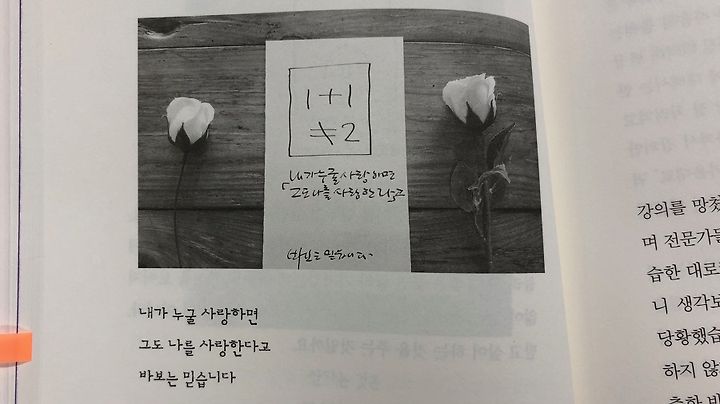 1+1
≠2
내가 누굴 사랑하면
「그도 나를 사랑한다」고
바보는 믿습니다.
내가 누굴 사랑하면
그도 나를 사랑한다고
바보는 믿습니다
강의를 망쳤
며 전문가들
습한 대로
니 생각보
당황했습
하지 않